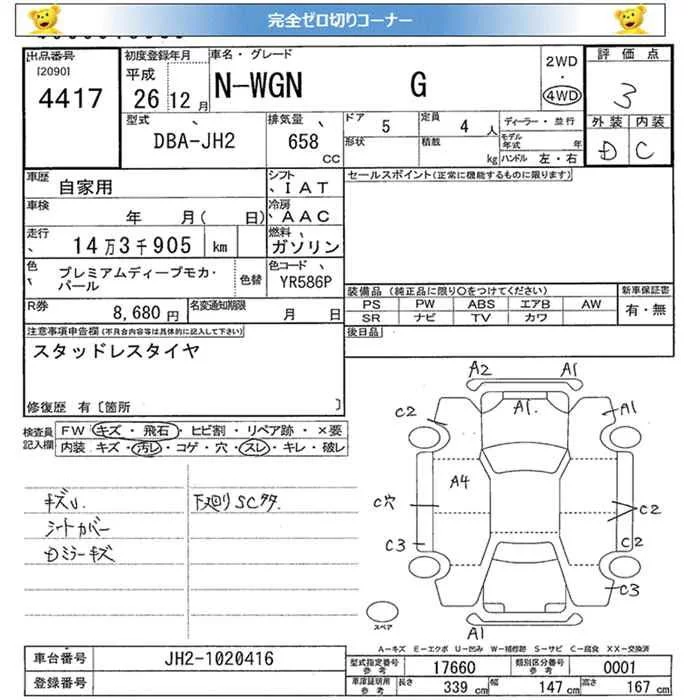 完全ゼロ切りコーナー
出品番号 初度登録年月 車名・グレード 2WD 評価点
[2090] 平成 ・
4417 26 12月 N-WGN G 4WD 3
型式 排気量 ドア 5 定員 4人 ディーラー・並行 外装 内装
DBA-JH2 658 CC 形状 積載 kg モデル年式 年 D C
ハンドル 左・右
車歴 自家用 シフト IAT セールスポイント(正常に機能するものに限ります)
車検 年 月( 日) 冷房 AAC
走行 14万3千905 km 燃料 ガソリン
色 プレミアムディープモカ・パール 色替 色コード YR586P
装備品(純正品に限り〇をつけてください) 新車保証書
R券 8,680円 名変通知期限 月 日 PS PW ABS エアB AW 有・無
SR ナビ TV カワ
注意事項申告欄(不具合内容等は具体的に記入して下さい) 後日品
スタッドレスタイヤ
修復歴 有〔箇所 〕
検査員記入欄 FW キズ・飛石・ヒビ割・リペア跡・×要
内装 キズ・汚レ・コゲ・穴・スレ・キレ・破レ
A2 A1
C2 A1. A1
A4
C穴 C2
C3 C2
C3
A1
キズU. 下廻りSCサタ
シートカバー
Dミラーキズ
スペア
A-キズ E-エクボ U-凹み W-補修跡 S-サビ C-腐食 XX-交換済
車台番号 JH2-1020416 型式指定番号 参考 17660 類別区分番号 参考 0001
登録番号 車庫証明用 参考 長さ 339 cm 幅 147 cm 高さ 167 cm